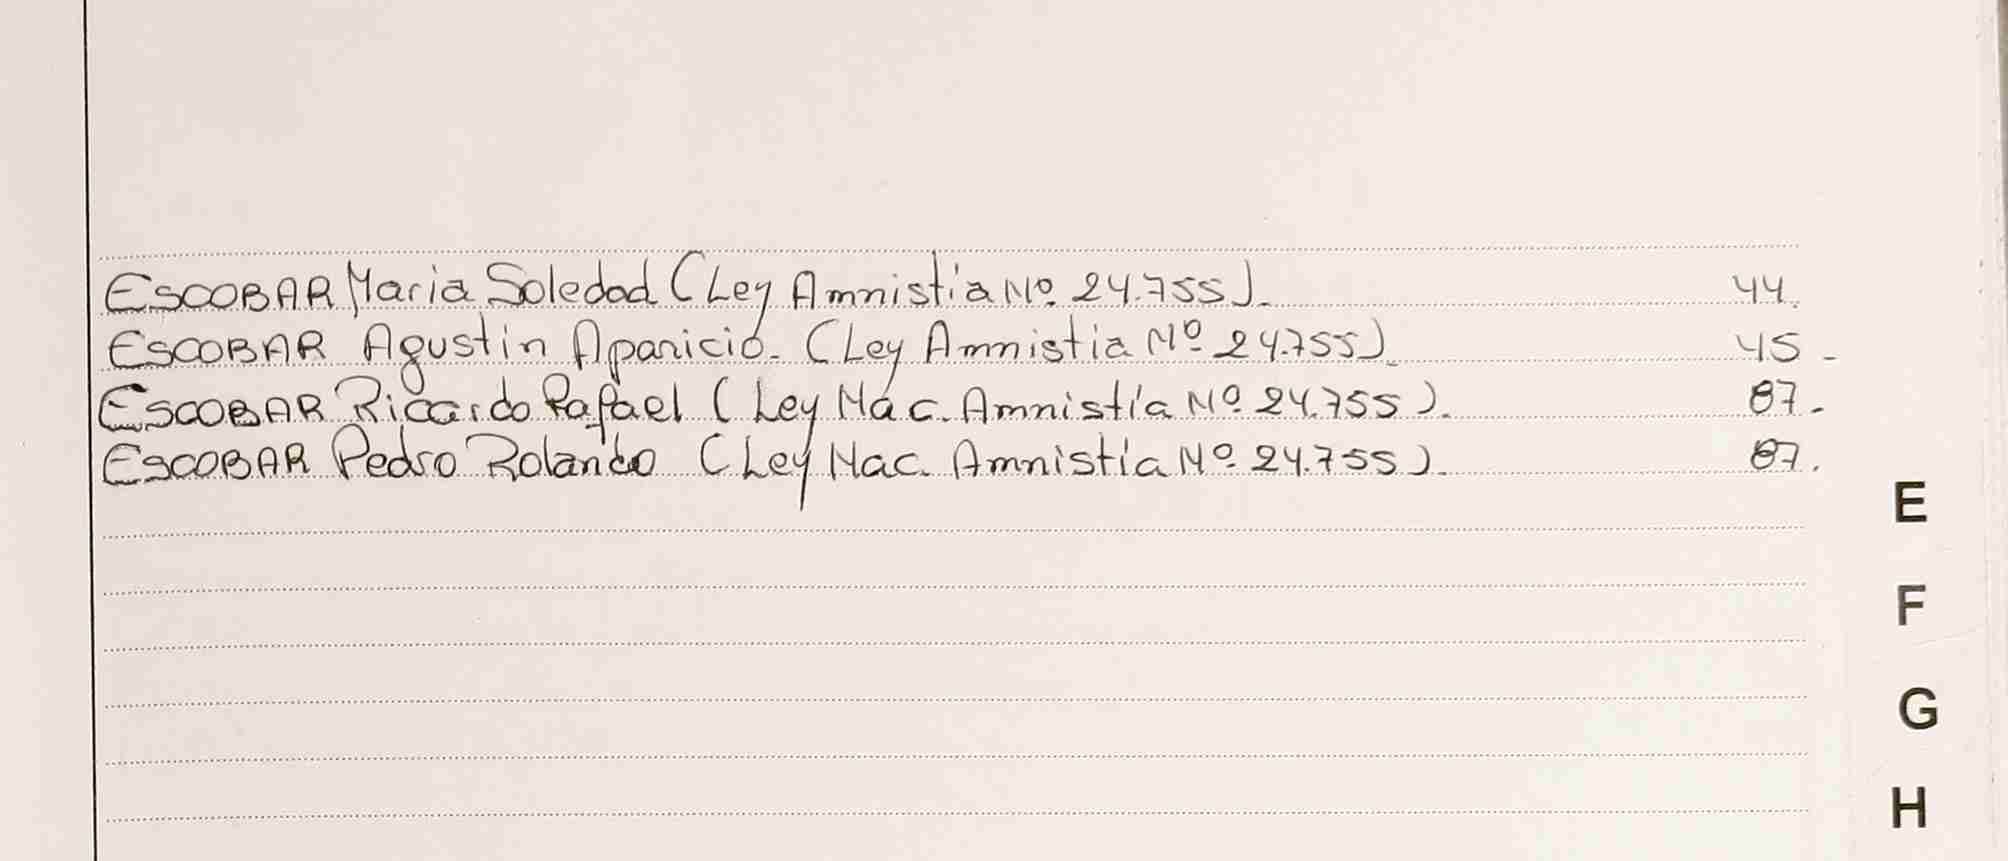 ESCOBAR Maria Soledad (Ley Amnistia Nº. 24.755). 44.
ESCOBAR Agustin Aparicio. (Ley Amnistia Nº 24.755). 45.
ESCOBAR Ricardo Rafael (Ley Nac. Amnistía Nº. 24.755). 87.
ESCOBAR Pedro Rolando (Ley Nac. Amnistía Nº. 24.755). 87.
E
F
G
H